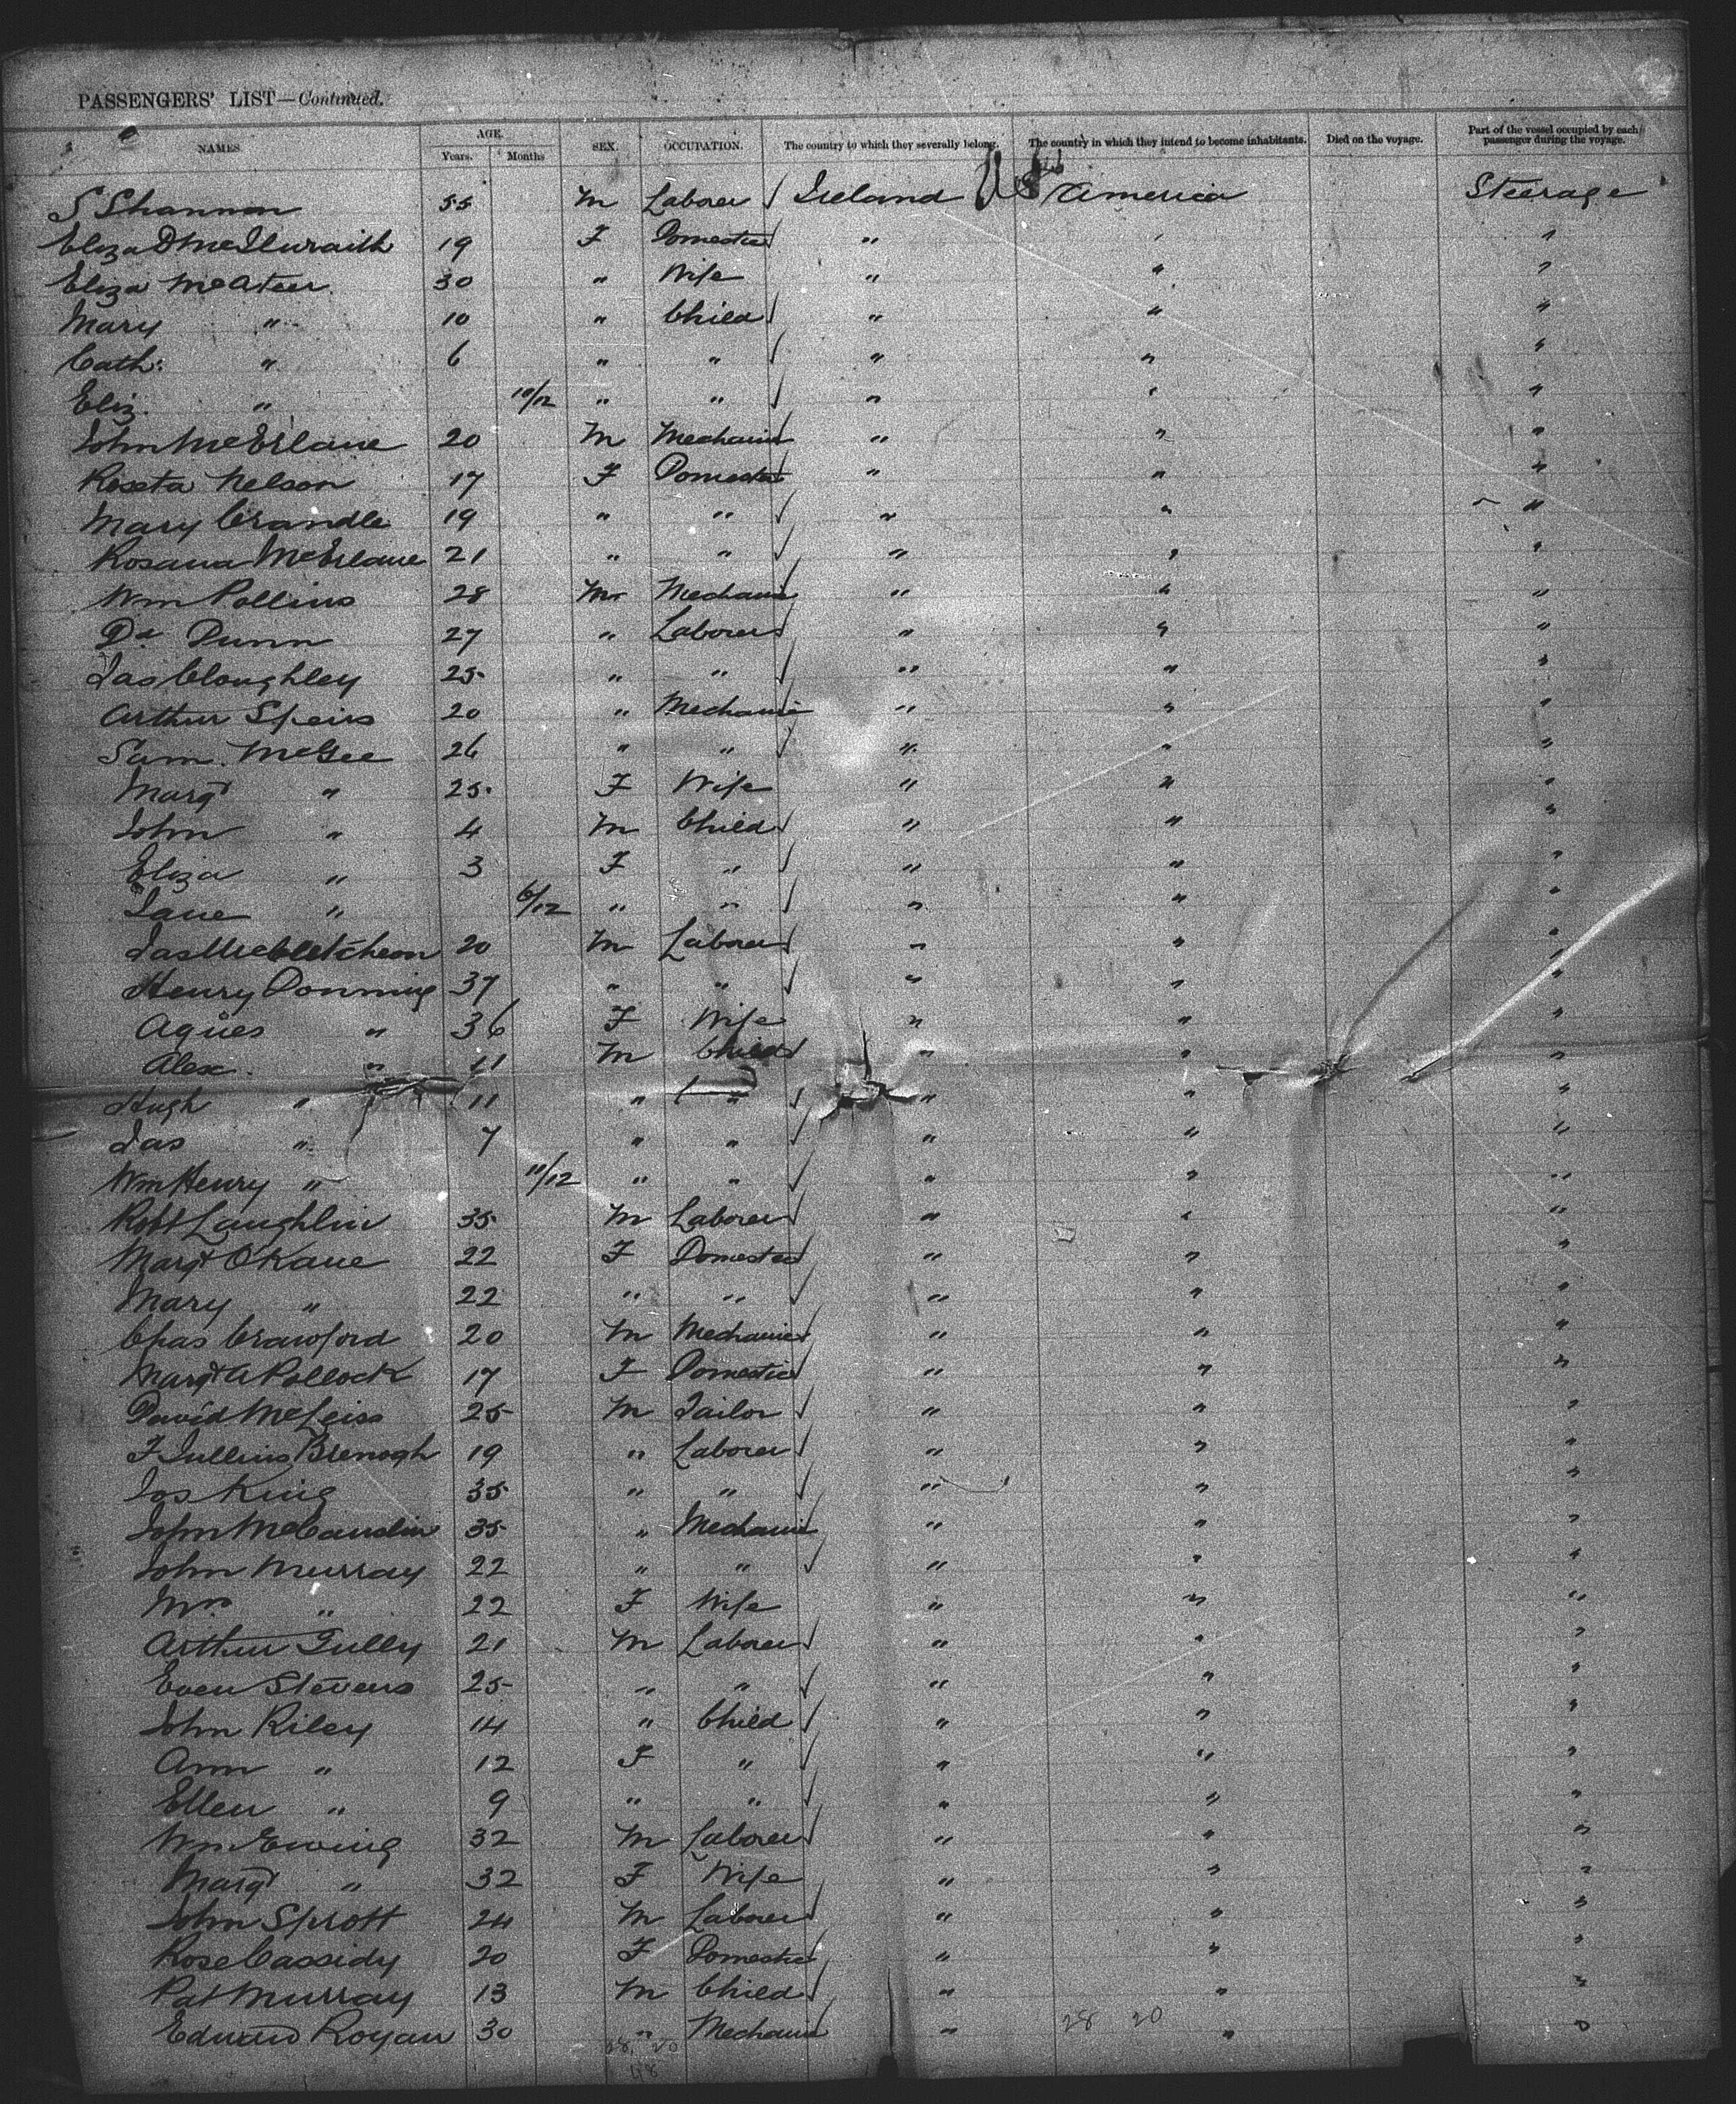 PASSENGERS' LIST—Continued.
NAMES. AGE. Years. Months SEX. OCCUPATION. The country to which they severally belong. The country in which they intend to become inhabitants. Died on the voyage. Part of the vessel occupied by each passenger during the voyage.
S Shannon 55 M Laborer Ireland America Steerage
Eliza D McIlwraith 19 F Domestic " " "
Eliza McAteer 30 " Wife " " "
Mary " 10 " Child " " "
Cath: " 6 " " " " "
Eliz. " 10/12 " " " " "
John McErlane 20 M Mechanic " " "
Roseta Nelson 17 F Domestic " " "
Mary Crandle 19 " " " " "
Rosana McErlane 21 " " " " "
Wm Pollins 28 M Mechanic " " "
Dd Dunn 27 " Laborer " " "
Jas Cloughley 25 " " " " "
Arthur Speirs 20 " Mechanic " " "
Sam. McGee 26 " " " " "
Margt " 25 F Wife " " "
John " 4 M Child " " "
Eliza " 3 F " " " "
Jane " 6/12 " " " " "
Jas McCletcheon 20 M Laborer " " "
Henry Donning 37 " " " " "
Agnes " 36 F Wife " " "
Alex. " 11 M Child " " "
Hugh " 11 " " " " "
Jas " 7 " " " " "
Wm Henry " 11/12 " " " " "
Robt Laughlin 35 M Laborer " " "
Margt OKane 22 F Domestic " " "
Mary " 22 " " " " "
Chas Crawford 20 M Mechanic " " "
Margt A Pollock 17 F Domestic " " "
David McLeiss 25 M Tailor " " "
F Jullius Brenogh 19 " Laborer " " "
Jos King 35 " " " " "
John McCauslin 35 " Mechanic " " "
John Murray 22 " " " " "
Mrs " 22 F Wife " " "
Arthur Tully 21 M Laborer " " "
Even Stevens 25 " " " " "
John Riley 14 " Child " " "
Ann " 12 F " " " "
Ellen " 9 " " " " "
Wm Ewing 32 M Laborer " " "
Margt " 32 F Wife " " "
John Sprott 24 M Laborer " " "
Rose Cassidy 20 F Domestic " " "
Pat Murray 13 M Child " " "
Edward Royan 30 " Mechanic " " "
28 20 28 20
48